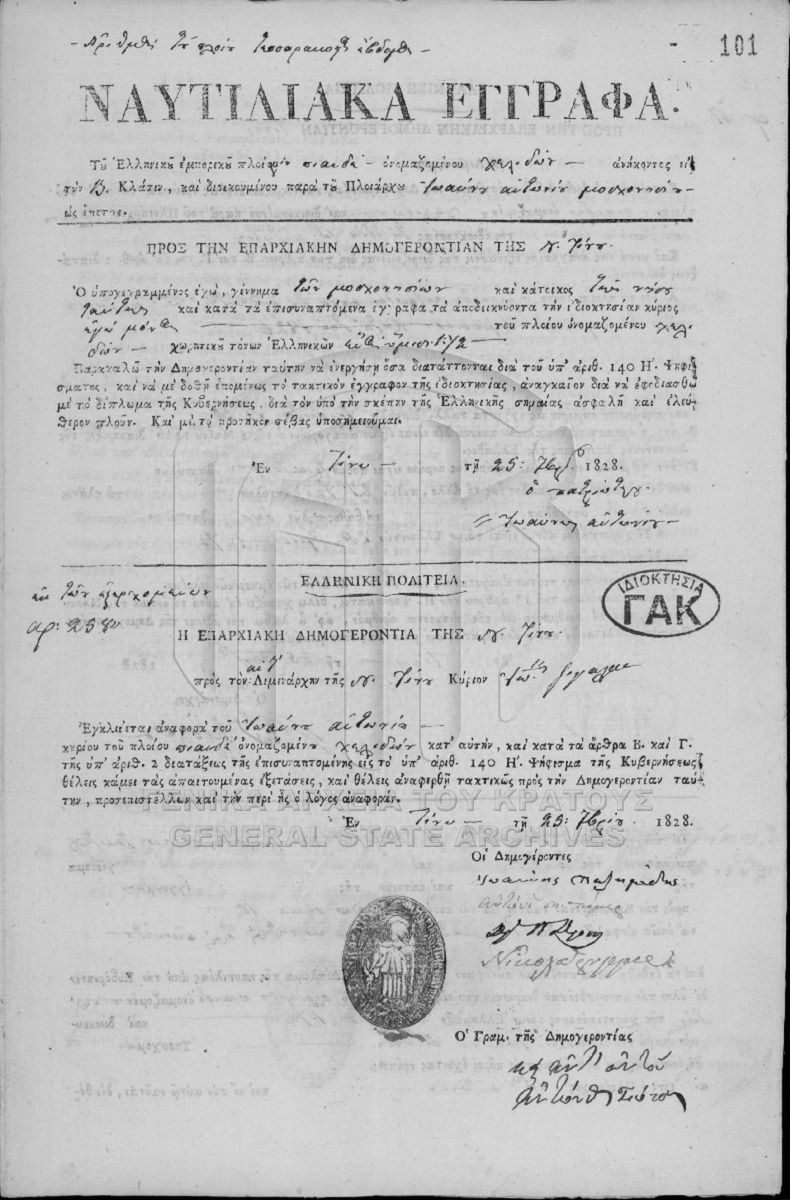 101
ΝΑΥΤΙΛΙΑΚΑ ΕΓΓΡΑΦΑ.
Τοῦ Ἑλληνικοῦ ἐμπορικοῦ πλοίου ὀνομαζομένου χελιδών ἀνήκοντος εἰς
τὴν Β. Κλάσιν, καὶ διοικουμένου παρὰ τοῦ Πλοιάρχου Ἰωάννου ἀντωνίου
ὡς ἕπεται.
ΠΡΟΣ ΤΗΝ ΕΠΑΡΧΙΑΚΗΝ ΔΗΜΟΓΕΡΟΝΤΙΑΝ ΤΗΣ Ν. Τήνου.
Ὁ ὑπογεγραμμένος ἐγὼ, γέννημα τῶν μοσχονησίων καὶ κάτοικος τῆς νήσου
ταύτης καὶ κατὰ τὰ ἐπισυναπτόμενα ἔγγραφα τὰ ἀποδεικνύοντα τὴν ἰδιοκτησίαν κύριος
ἐγὼ μόνος τοῦ πλοίου ὀνομαζομένου χελι
δών χωρητικοῦ τόνων Ἑλληνικῶν
Παρακαλῶ τὴν Δημογεροντίαν ταύτην νὰ ἐνεργήσῃ ὅσα διατάττονται διὰ τοῦ ὑπ' ἀριθ. 140 Η'. Ψηφί-
σματος, καὶ νὰ μὲ δοθῇ ἑπομένως τὸ τακτικὸν ἔγγραφον τῆς ἰδιοκτησίας, ἀναγκαῖον διὰ νὰ ἐφοδιασθῶ
μὲ τὸ δίπλωμα τῆς Κυβερνήσεως, διὰ τὸν ὑπὸ τὴν σκέπην τῆς Ἑλληνικῆς σημαίας ἀσφαλῆ καὶ ἐλεύ-
θερον πλοῦν. Καὶ μὲ τὸ προσῆκον σέβας ὑποσημειοῦμαι.
Ἐν Τήνῳ τῇ 25: 7βρίου 1828.
Ἰωάννης ἀντωνίου
ΕΛΛΗΝΙΚΗ ΠΟΛΙΤΕΙΑ.
ΙΔΙΟΚΤΗΣΙΑ
ΓΑΚ
ἀρ: 258
Η ΕΠΑΡΧΙΑΚΗ ΔΗΜΟΓΕΡΟΝΤΙΑ ΤΗΣ Ν. Τήνου.
πρὸς τὸν Λιμενάρχην τῆς Ν. Τήνου Κύριον
Ἐγκλείεται ἀναφορὰ τοῦ Ἰωάννου ἀντωνίου
κυρίου τοῦ πλοίου ὀνομαζομένου χελιδών κατ' αὐτὴν, καὶ κατὰ τὰ ἄρθρα Β. καὶ Γ.
τῆς ὑπ' ἀριθ. 2 διατάξεως τῆς ἐπισυναπτομένης εἰς τὸ ὑπ' ἀριθ. 140 Η'. Ψήφισμα τῆς Κυβερνήσεως
θέλεις κάμει τὰς ἀπαιτουμένας ἐξετάσεις, καὶ θέλεις ἀναφερθῆ τακτικῶς πρὸς τὴν Δημογεροντίαν ταύ-
την, προσεπιστέλλων καὶ τὴν περὶ ἧς ὁ λόγος ἀναφοράν.
ΓΕΝΙΚΑ ΑΡΧΕΙΑ ΤΟΥ ΚΡΑΤΟΥΣ
GENERAL STATE ARCHIVES
Ἐν Τήνῳ τῇ 25: 7βρίου. 1828.
Οἱ Δημογέροντες
Ὁ Γραμ. τῆς Δημογεροντίας